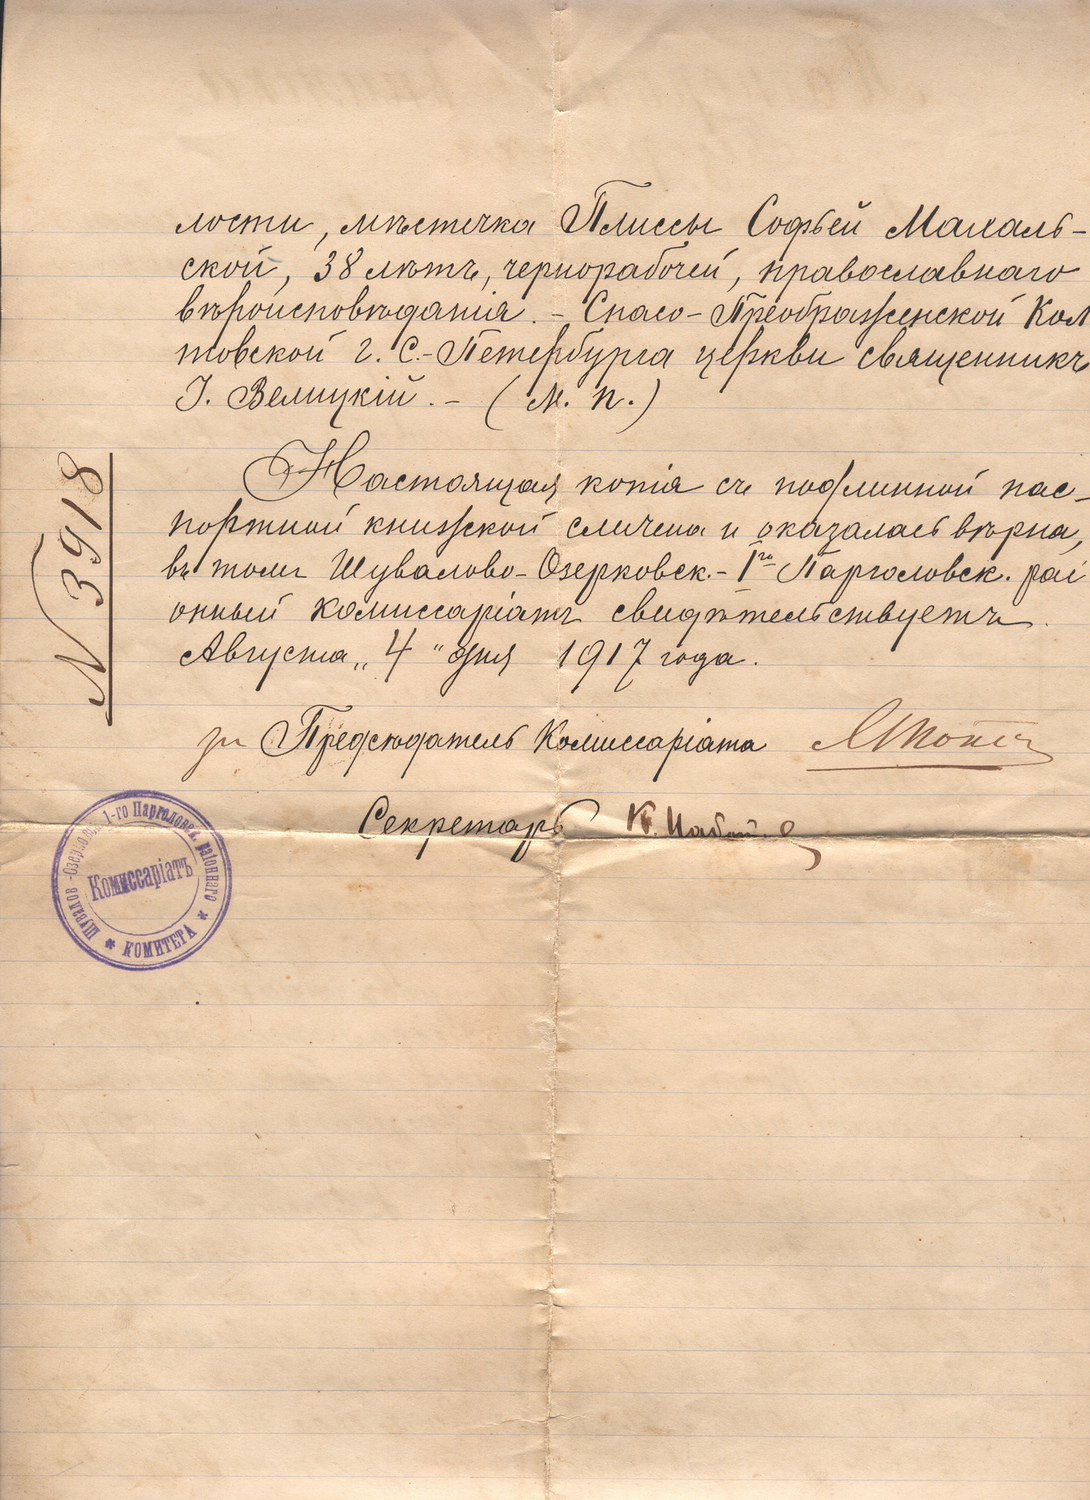 лости, мѣстечка Плиссы Софьей Махаль-
ской, 38 лѣтъ, чернорабочей, православнаго
вѣроисповѣданія. - Спасо-Преображенской Кол
товской г. С.-Петербурга церкви священникъ
І. Велицкій. - (М. П.)
Настоящая копія съ подлинной пас-
портной книжской сличена и оказалась вѣрна,
въ томъ Шувалово-Озерковск.- 1го Парголовск. раі
онный комиссаріатъ свидѣтельствуетъ.
Августа „4" дня 1917 года.
за Предсѣдатель Комиссаріата
Секретарь К.
N 3918
Шувалов-Озерковск. 1-го Парголовск. раіоннаго
Комиссаріатъ
* КОМИТЕТА *